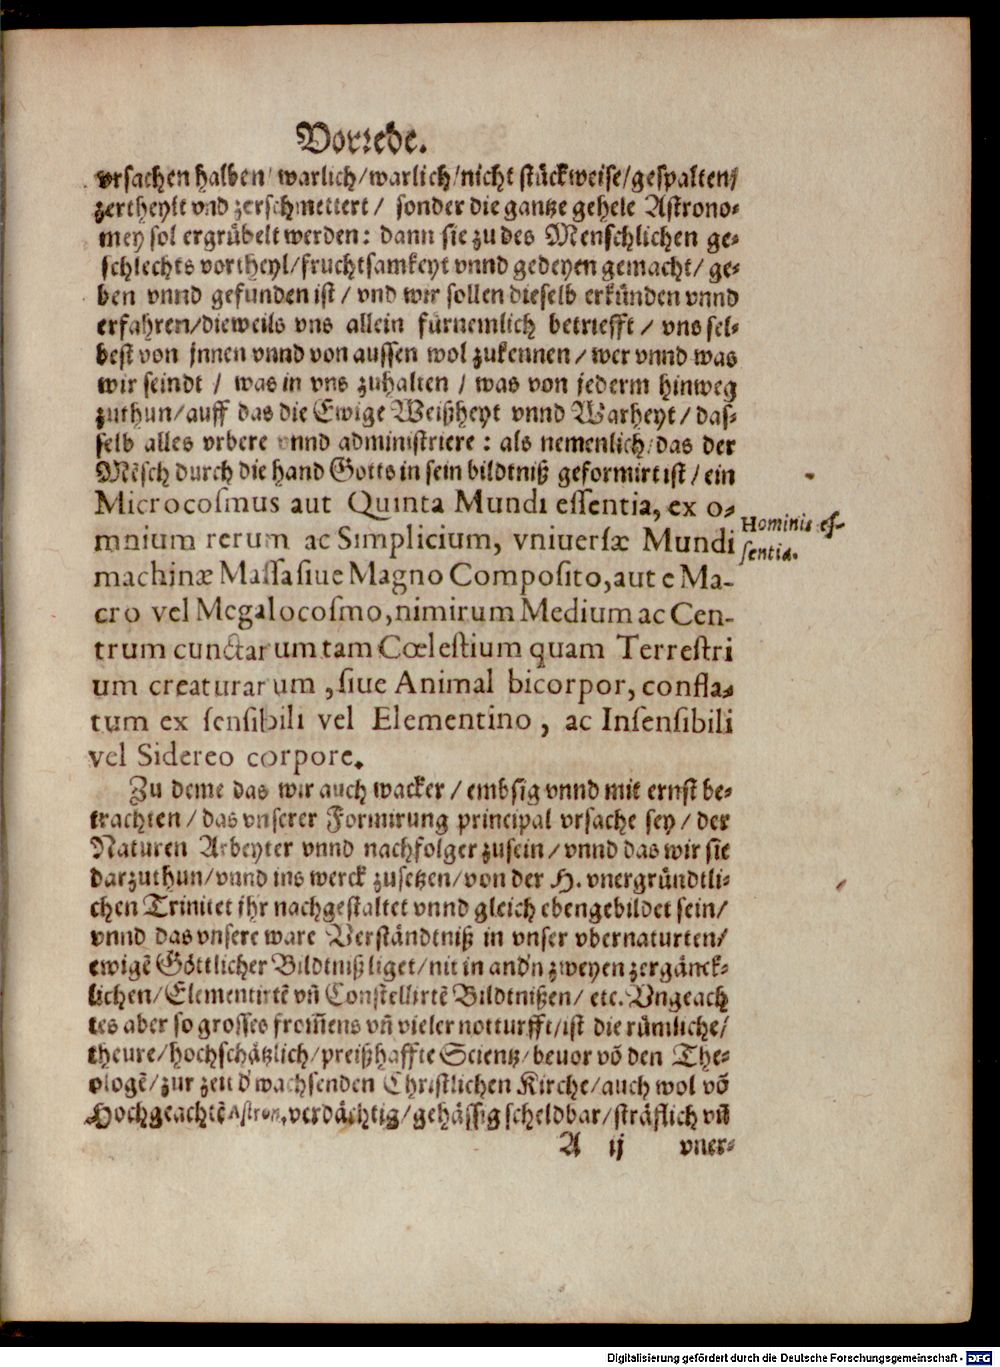 Vorrede.
vrsachen halben/ warlich/warlich/nicht stückweise/gespalten/
zertheylt vnd zerschmettert/ sonder die gantze gehele Astrono-
mey sol ergrübelt werden: dann sie zu des Menschlichen ge-
schlechts vortheyl/fruchtsamkeyt vnnd gedeyen gemacht/ ge-
ben vnnd gefunden ist/ vnd wir sollen dieselb erkünden vnnd
erfahren/dieweils vns allein fürnemlich betriefft/ vns sel-
best von jnnen vnnd von aussen wol zukennen/ wer vnnd was
wir seindt/ was in vns zuhalten/ was von jederm hinweg
zuthun/auff das die Ewige Weißheyt vnnd Warheyt/ das-
selb alles vrbere vnnd administriere: als nemenlich/das der
Mẽsch durch die hand Gotts in sein bildtniß geformirt ist/ ein
Microcoſmus aut Quinta Mundi eſſentia, ex o-
mnium rerum ac Simplicium, vniuerſæ Mundi
machinæ Maſſa siue Magno Compoſito, aut e Ma-
cro vel Megalocoſmo, nimirum Medium ac Cen-
trum cunctarum tam Cœleſtium quam Terreſtri
um creaturarum, ſiue Animal bicorpor, confla-
tum ex ſenſibili vel Elementino, ac Inſenſibili
vel Sidereo corpore.
Hominis eſ-
ſentia.
Zu deme das wir auch wacker/ embsig vnnd mit ernst be-
trachten/ das vnserer Formirung principal vrsache sey/ der
Naturen Arbeyter vnnd nachfolger zusein/ vnnd das wir sie
darzuthun/ vnnd ins werck zusetzen/ von der H. vnergründtli-
chen Trinitet jhr nachgestaltet vnnd gleich ebengebildet sein/
vnnd das vnsere ware Verständtniß in vnser vbernaturten/
ewigẽ Göttlicher Bildtniß liget/ nit in and'n zweyen zergänck-
lichen/ Elementirtẽ vñ Constellirtẽ Bildtnißen/ etc. Vngeach
tes aber so grosses from̃ens vñ vieler notturfft/ist die rümliche/
theure/hochschätzlich/preißhaffte Scientz/ beuor võ den The-
ologẽ/zur zeit d' wachsenden Christlichen Kirche/ auch wol võ
Hochgeachtẽ Astron. verdächtig/ gehässig scheldbar/ sträflich vñ
A ij vner-
Digitalisierung gefördert durch die Deutsche Forschungsgemeinschaft - DFG